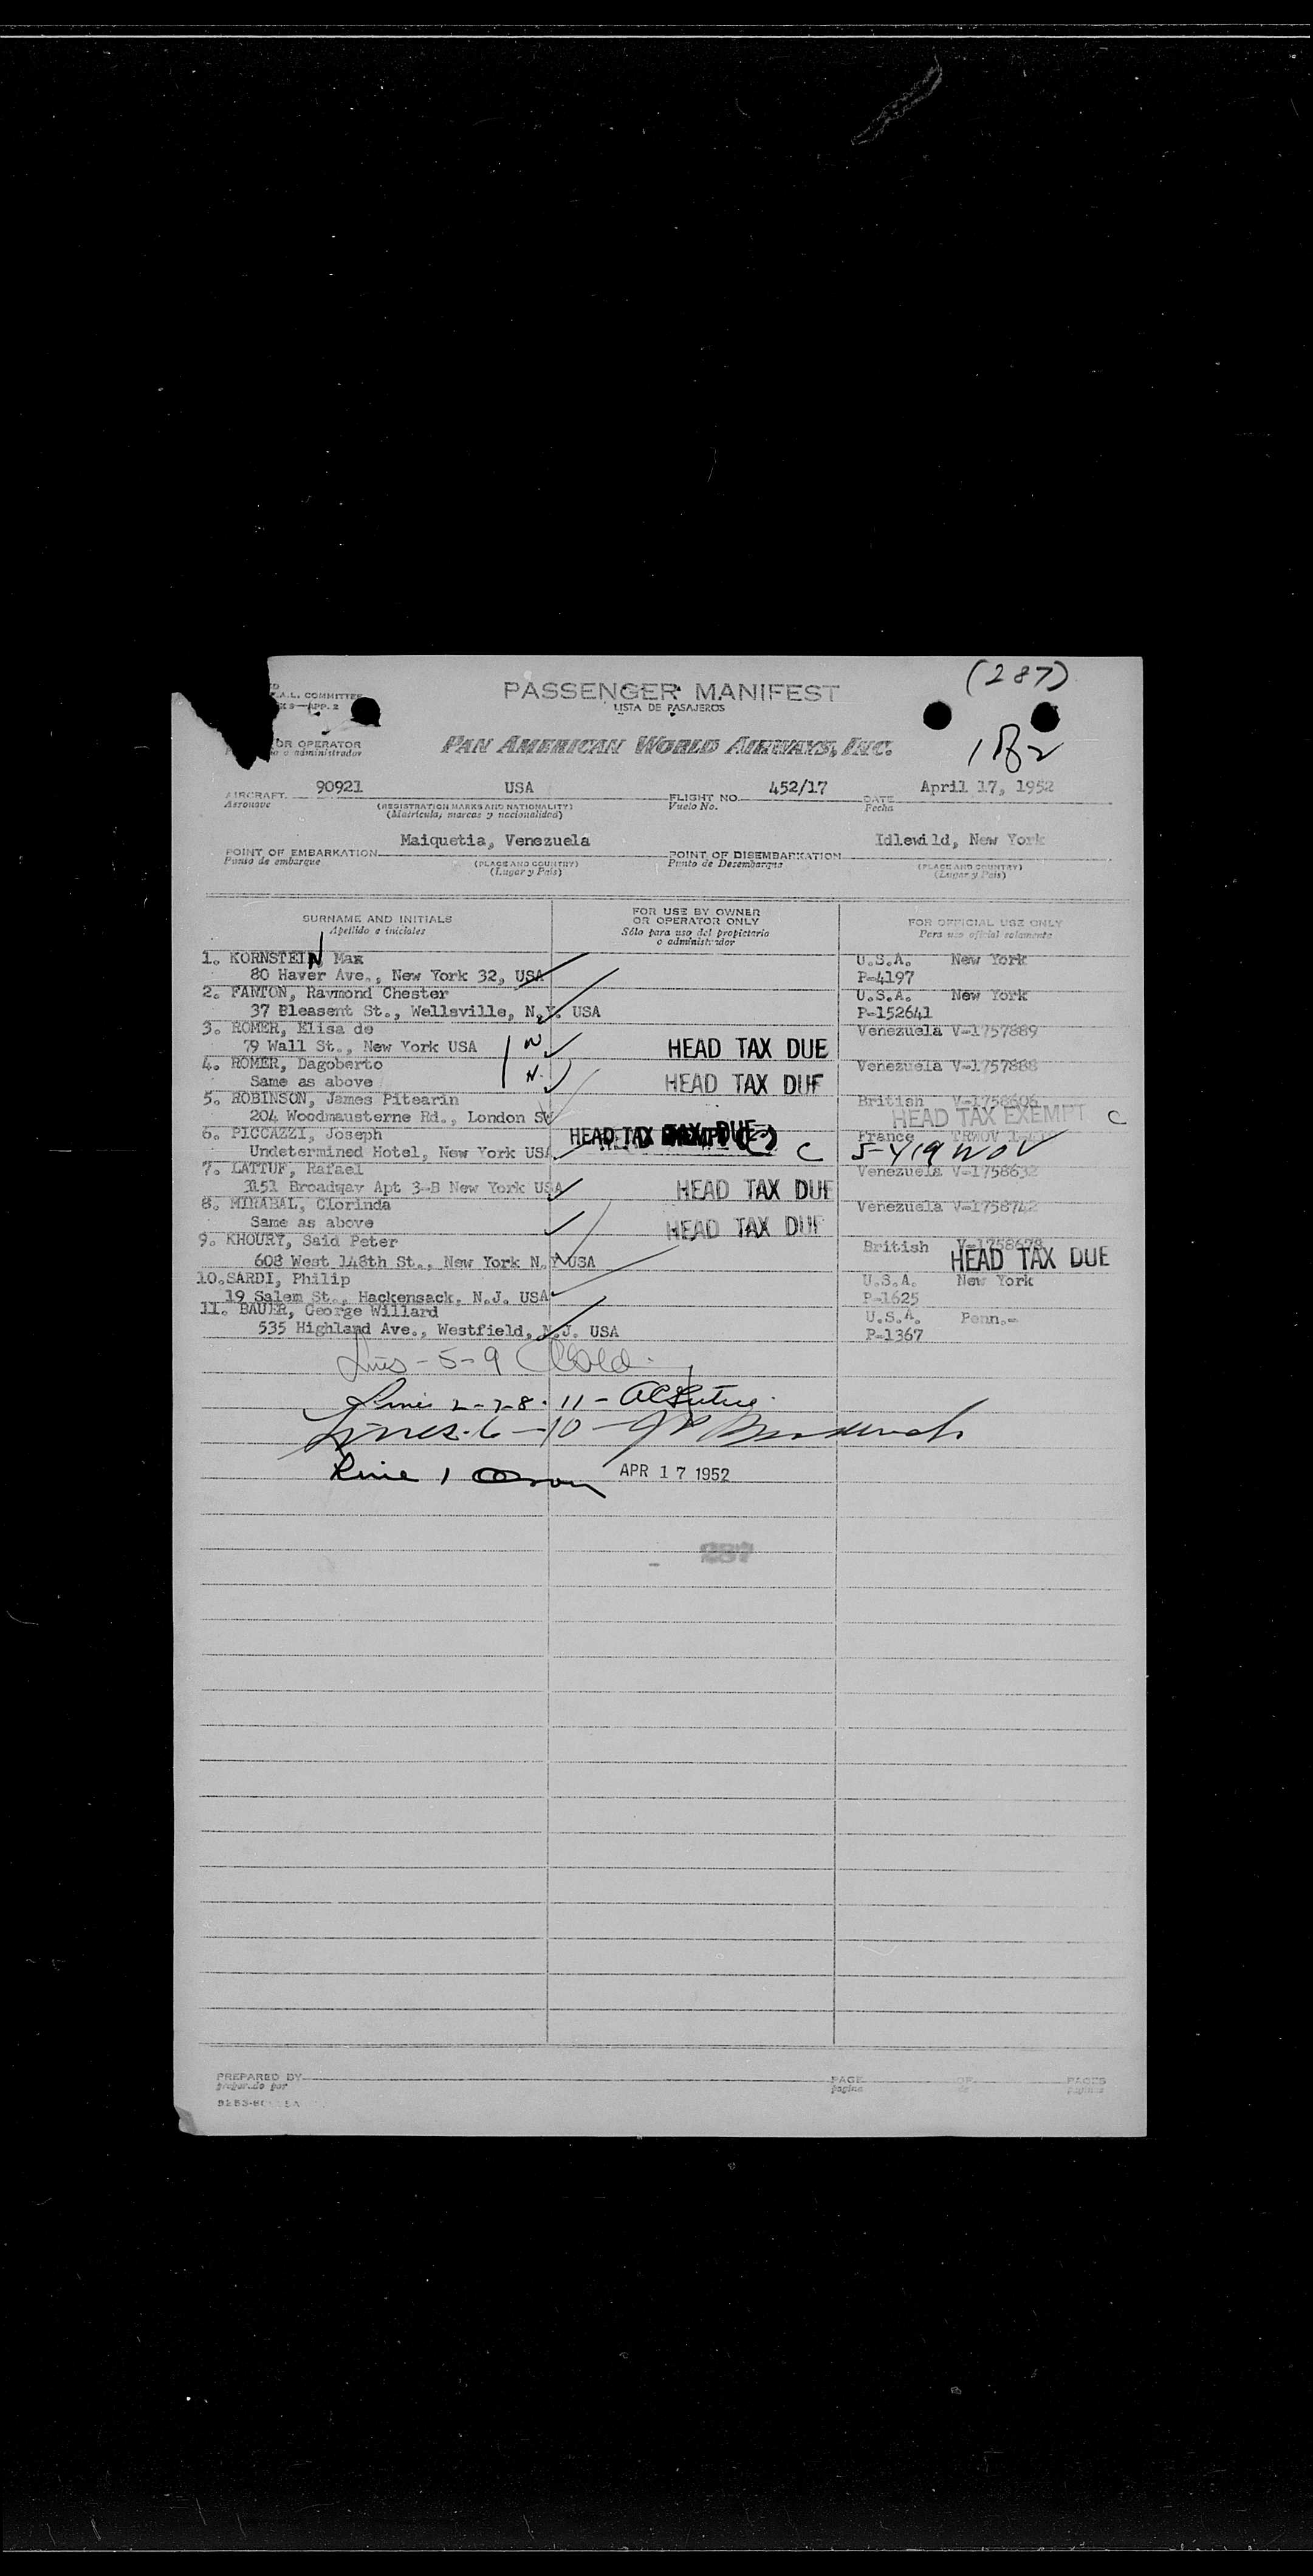 (287)
PASSENGER MANIFEST
LISTA DE PASAJEROS
A.L. COMMITTEE
9—APP. 2
OR OPERATOR
o administrador
PAN AMERICAN WORLD AIRWAYS, INC.
AIRCRAFT 90921 USA FLIGHT NO. 452/17 DATE April 17, 1952
Aeronave (REGISTRATION MARKS AND NATIONALITY) Vuelo No. Fecha
(Matrícula, marcas y nacionalidad)
POINT OF EMBARKATION Maiquetia, Venezuela POINT OF DISEMBARKATION Idlewild, New York
Punto de embarque (PLACE AND COUNTRY) Punto de Desembarque (PLACE AND COUNTRY)
(Lugar y País) (Lugar y País)
SURNAME AND INITIALS FOR USE BY OWNER OR OPERATOR ONLY FOR OFFICIAL USE ONLY
Apellido e iniciales Sólo para uso del propietario o administrador Para uso oficial solamente
1. KORNSTEIN, Max U.S.A. New York
80 Haver Ave., New York 32, USA P-4197
2. FANTON, Raymond Chester U.S.A. New York
37 Bleasent St., Wellsville, N.Y. USA P-152641
3. ROMER, Elisa de Venezuela V-1757889
79 Wall St., New York USA N HEAD TAX DUE
4. ROMER, Dagoberto Venezuela V-1757888
Same as above N. HEAD TAX DUE
5. ROBINSON, James Pitearin British V-1758606
204 Woodmausterne Rd., London SW HEAD TAX EXEMPT C
6. PICCAZZI, Joseph HEAD TAX DUE France TRWOV
Undetermined Hotel, New York USA C 5-419 WOV
7. LATTUF, Rafael Venezuela V-1758632
3151 Broadway Apt 3-B New York USA HEAD TAX DUE
8. MIRABAL, Clorinda Venezuela V-1758742
Same as above HEAD TAX DUE
9. KHOURY, Said Peter British V-1758678
608 West 148th St., New York N.Y. USA HEAD TAX DUE
10. SARDI, Philip U.S.A. New York
19 Salem St., Hackensack, N.J. USA P-1625
11. BAUER, George Willard U.S.A. Penn.-
535 Highland Ave., Westfield, N.J. USA P-1367
Lines - 5 - 9
Lines 2 - 7-8 - 11 -
Lines - 6 - 10 -
Line 1
APR 17 1952
287
PREPARED BY PAGE OF PAGES
preparado por página de páginas